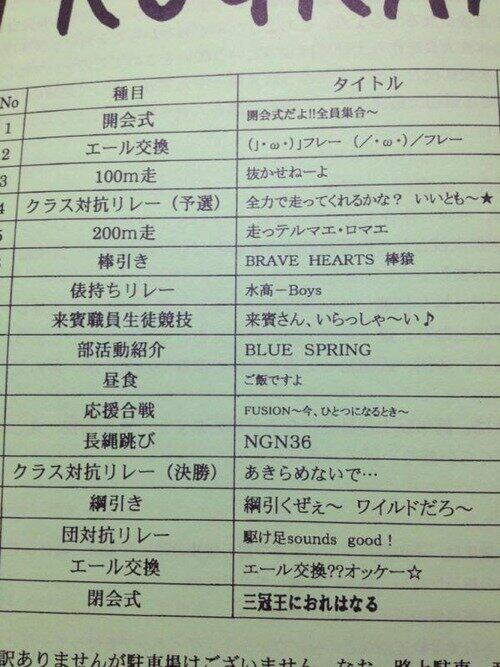 PROGRAM
No 種目 タイトル
1 開会式 開会式だよ!!全員集合～
2 エール交換 (」・ω・)」フレー (／・ω・)／フレー
3 100m走 抜かせねーよ
4 クラス対抗リレー（予選） 全力で走ってくれるかな？ いいとも～★
5 200m走 走っテルマエ・ロマエ
棒引き BRAVE HEARTS 棒猿
俵持ちリレー 水高－Boys
来賓職員生徒競技 来賓さん、いらっしゃ～い♪
部活動紹介 BLUE SPRING
昼食 ご飯ですよ
応援合戦 FUSION～今、ひとつになるとき～
長縄跳び NGN36
クラス対抗リレー（決勝） あきらめないで…
綱引き 綱引くぜぇ～ ワイルドだろ～
団対抗リレー 駆け足sounds good！
エール交換 エール交換??オッケー☆
閉会式 三冠王におれはなる
訳ありませんが駐車場はございません。なお、路上駐車